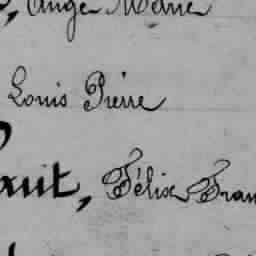 , Ange Marie
Louis Pierre
uit, Félix Fran